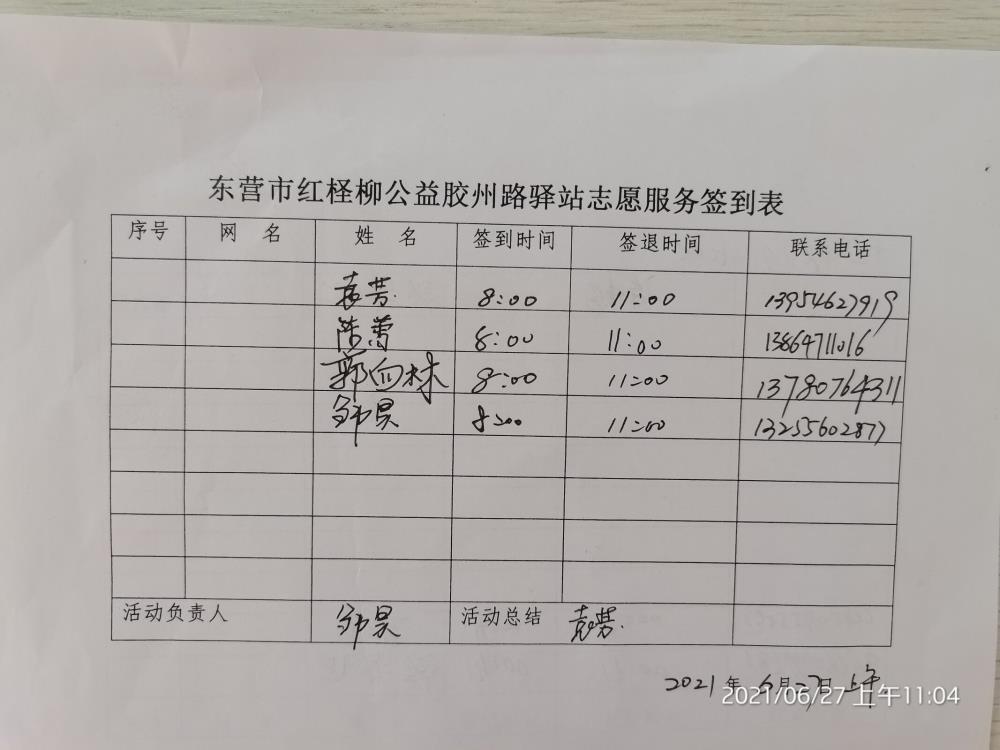 东营市红柽柳公益胶州路驿站志愿服务签到表
序号 网 名 姓 名 签到时间 签退时间 联系电话
袁芳 8:00 11:00 13954627919
陈蕾 8:00 11:00 13864711016
郭向林 8:00 11:00 13780764311
邹昊 8:00 11:00 13255602877
活动负责人 邹昊 活动总结 袁芳
2021年6月27日上午
2021/06/27 上午11:04